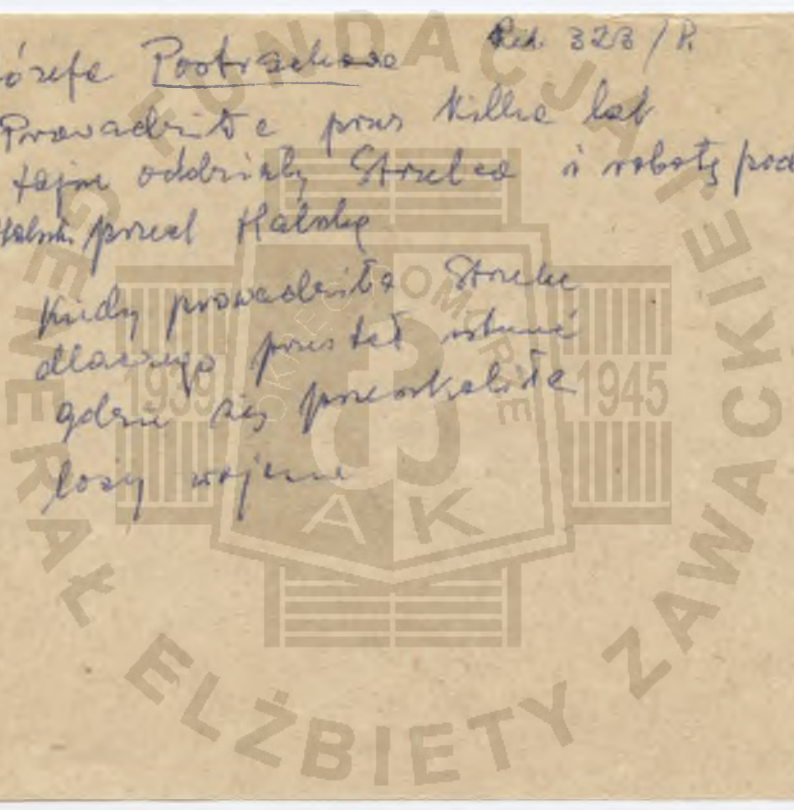 Rel. 323/P.
ózefa
Prowadziła przez kilka lat
tajne oddziały Strzelca i robotę pod
przed
Kiedy prowadziła Strzelec
dlaczego przestał istnieć
gdzie się przeszkoliła
losy wojenne
FUNDACJA GENERAŁ ELŻBIETY ZAWACKIEJ
OKRĘG POMORZE
1939
1945
AK